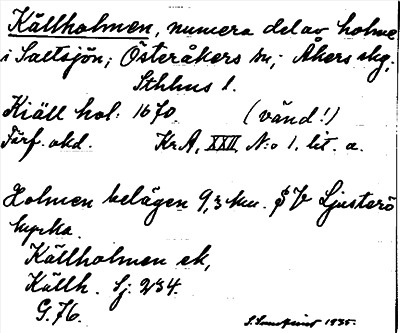 Källholmen, numera del av holme
i Saltsjön; Österåkers sn; Åkers skg;
Sthlms l.
Kiäll hol: 1670. (vänd!)
Förf. okd. Kr.A, XXII, N:o 1. lit. a.
Holmen belägen 9,3 km. SV Ljusterö
kyrka.
Källholmen ek,
Källh. Sj. 234.
G. 76.
1935.